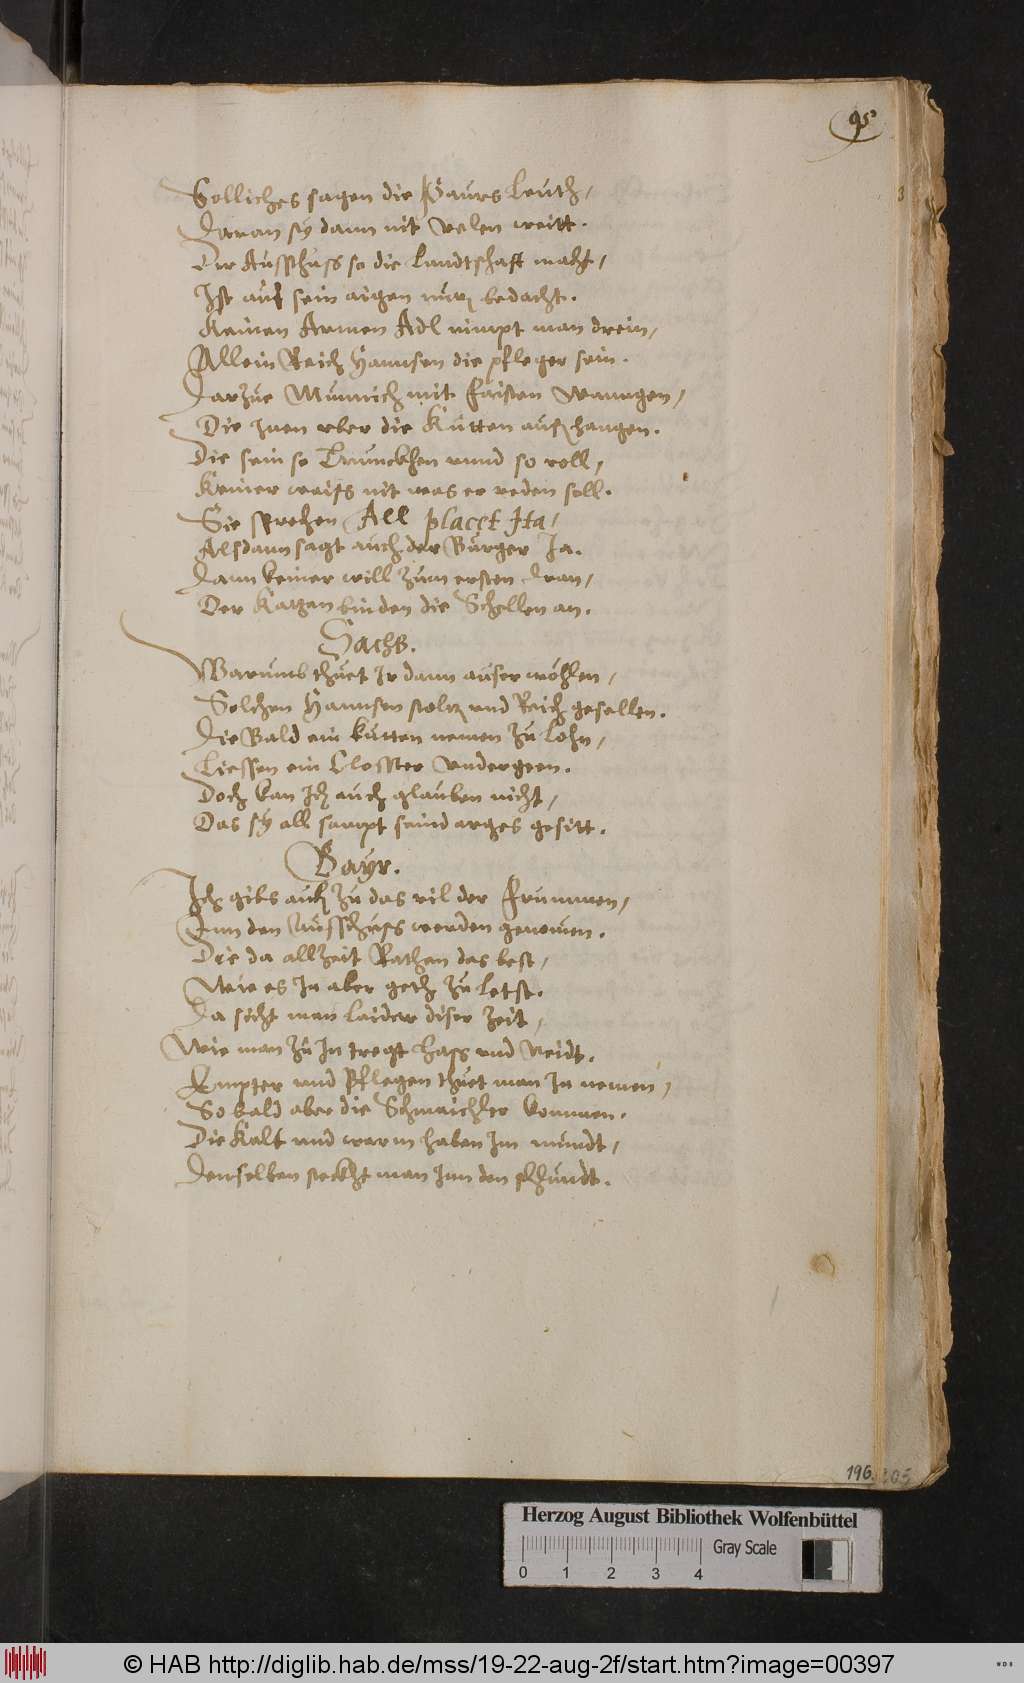 95
Solliches sagen die Paurs Leuth /
Daran sy dann nit velen weitt.
Der Ausschuss so die Landtschaft macht /
Ist auf sein aigen nutz bedacht.
Keinen Armen Adl nimpt man drein /
Allein Reich Hannsen die pfleger sein.
Darzue Münnich mit faisten Wanngen /
Die inen vber die Kutten aus hangen.
Die sein so Trunckhen vnnd so voll /
Keiner waiss nit was er reden soll.
Sie sprechen All placet Ita /
Alssdann sagt auch der Burger Ja.
Dann keiner will zum ersten dran /
Der Katzen binden die Schellen an.
Sachß.
Warumb thuet Ir dann ausserwöhlen /
Solchen Hannsen stoltz vnd Reich gesellen.
Die Bald ein kutten nemen zu Lohn /
Liessen ein Closster vndergeen.
Doch kan Ich auch glauben nicht /
Das sy all sampt seind arges gesitt.
Bayr.
Ich gibs auch zu das vil der frummen /
Inn den Ausschuss werden genomen.
Die da allzeit Rathen das best /
Wie es In aber geth zu letst.
Da sicht man laider diser Zeit /
Wie man zu In tregt hass vnd Neidt.
Empter vnd Pflegen thuet man In nemen /
So bald aber die Schmaichler kommen.
Die Kalt vnd warm haben Im mundt /
Denselben steckht man Inn den schlundt.
196. 205
Herzog August Bibliothek Wolfenbüttel
Gray Scale
0 1 2 3 4
© HAB http://diglib.hab.de/mss/19-22-aug-2f/start.htm?image=00397